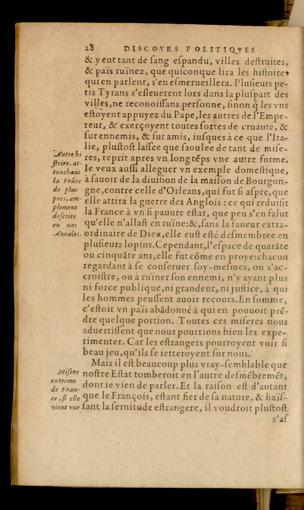 28 DISCOVRS POLITIQVES
& y ent tant de sang espandu, villes destruites,
& païs ruïnez, que quiconque lira les histoires
qui en parlent, s'en esmerueillera. Plusieurs pe-
tis Tyrans s'esleuerent lors dans la pluspart des
villes, ne reconoissans personne, sinon q̃ les vns
estoyent appuyez du Pape, les autres de l'Empe-
reur, & exerçoyent toutes sortes de cruauté, &
sur ennemis, & sur amis, iusques à ce que l'Ita-
lie, plustost lassee que saoulee de tant de mise-
res, reprit apres vn long tẽps vne autre forme.
Ie veux aussi alleguer vn exemple domestique,
à sauoir de la diuision de la maison de Bourgon-
gne, contre celle d'Orleans, qui fut si aspre, que
elle attira la guerre des Anglois: ce qui reduisit
la France à vn si pauure estat, que peu s'en falut
qu'elle n'allast en ruïne: &, sans la faueur extra-
ordinaire de Dieu, elle eust esté desmembree en
plusieurs lopins. Cependant, l'espace de quarãte
ou cinquãte ans, elle fut cõme en proye: chacun
regardant à se conseruer soy-mesmes, ou s'ac-
croistre, ou à ruïner son ennemi, n'y ayant plus
ni force publique, ni grandeur, ni iustice, à qui
les hommes peussent auoir recours. En somme,
c'estoit vn païs abãdonné à qui en pouuoit prẽ-
dre quelque portion. Toutes ces miseres nous
aduertissent que nous pourrions bien les expe-
rimenter. Car les estrangers pourroyent voir si
beau jeu, qu'ils se ietteroyent sur nous.
Mais il est beaucoup plus vray-semblable que
nostre Estat tomberoit en l'autre desmẽbremẽt,
dont ie vien de parler. Et la raison est d'autant
que le François, estant fier de sa nature, & haïs-
sant la seruitude estrangere, il voudroit plustost
s'as
Autre hi
stoire, at-
touchant
la Frãce
de plus
pres, am-
plement
descrite
en nos
Annales.
Misere
extreme
de Fran-
ce, si elle
vient vne